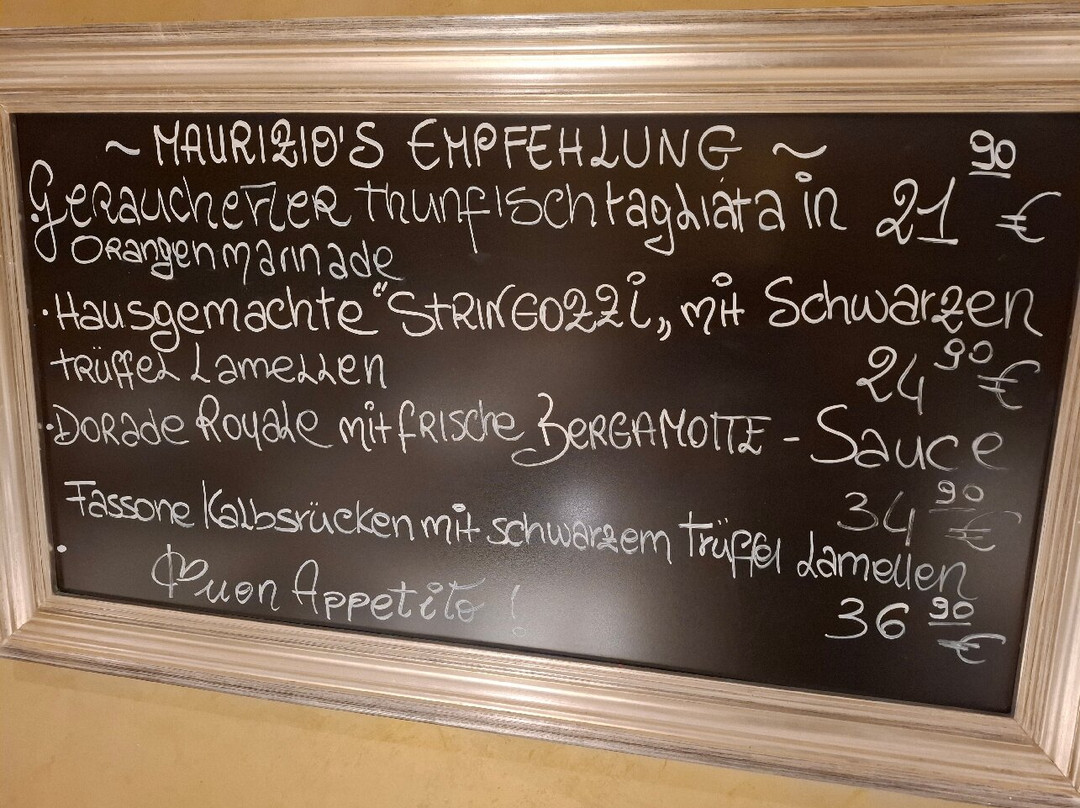 ~ MAURIZIO'S EMPFEHLUNG ~
Geraucherter Thunfischtagliata in 21 90 €
Orangenmarinade
·Hausgemachte "STRINGOZZI„ mit Schwarzen
trüffel Lamellen 24 90 €
·Dorade Royale mit frische BERGAMOTTE - Sauce
34 90 €
Fassone Kalbsrücken mit schwarzem Trüffel Lamellen
36 90 €
· Buon Appetito !